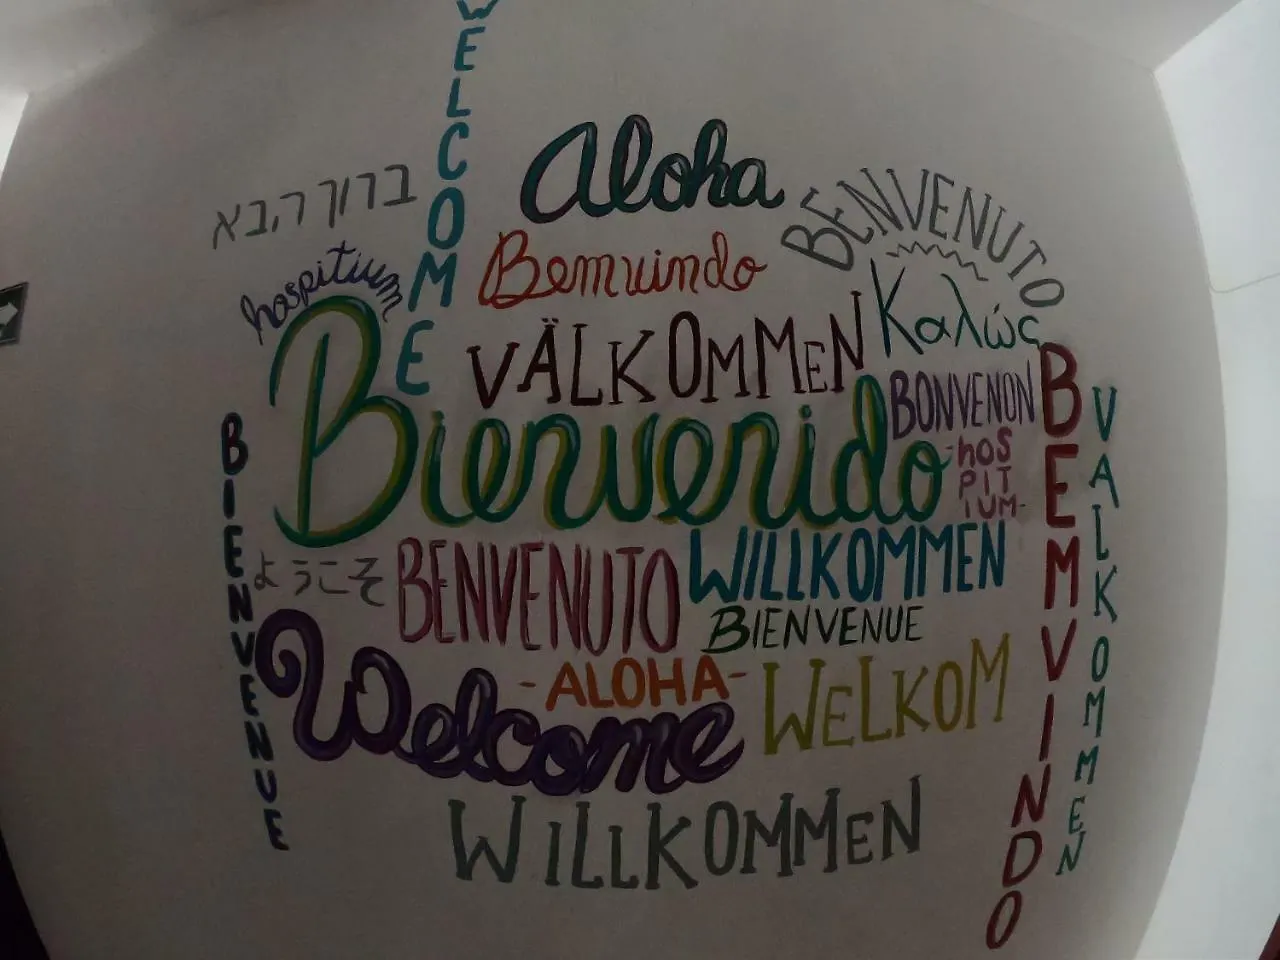 WELCOME
Aloha
ברוך הבא
BENVENUTO
Bemvindo
hospitium
Καλώς
VÄLKOMMEN
BONVENON
BEMVINDO
VALKOMMEN
Bienvenido
-hos
PIT
IUM-
BIENVENUE
ようこそ
BENVENUTO
WILLKOMMEN
BIENVENUE
-ALOHA-
WELKOM
Welcome
WILLKOMMEN